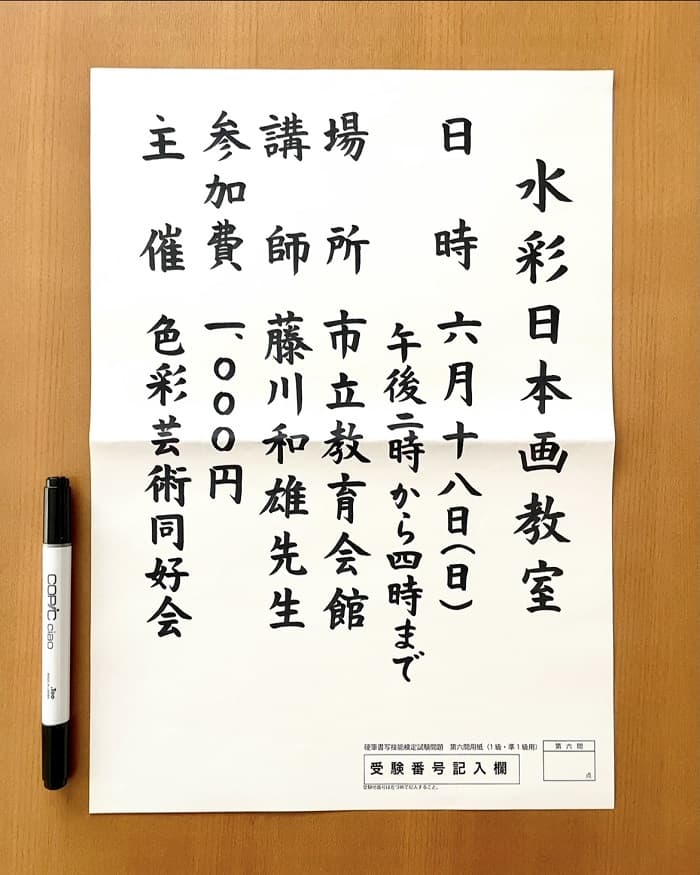 水彩日本画教室
日時 六月十八日（日）
午後二時から四時まで
場所 市立教育会館
講師 藤川和雄先生
参加費 一、〇〇〇円
主催 色彩芸術同好会
硬筆書写技能検定試験問題 第六問用紙（1級・準1級用）
受験番号記入欄
受験番号は左づめで記入すること。
第六問
点
COPIC ciao